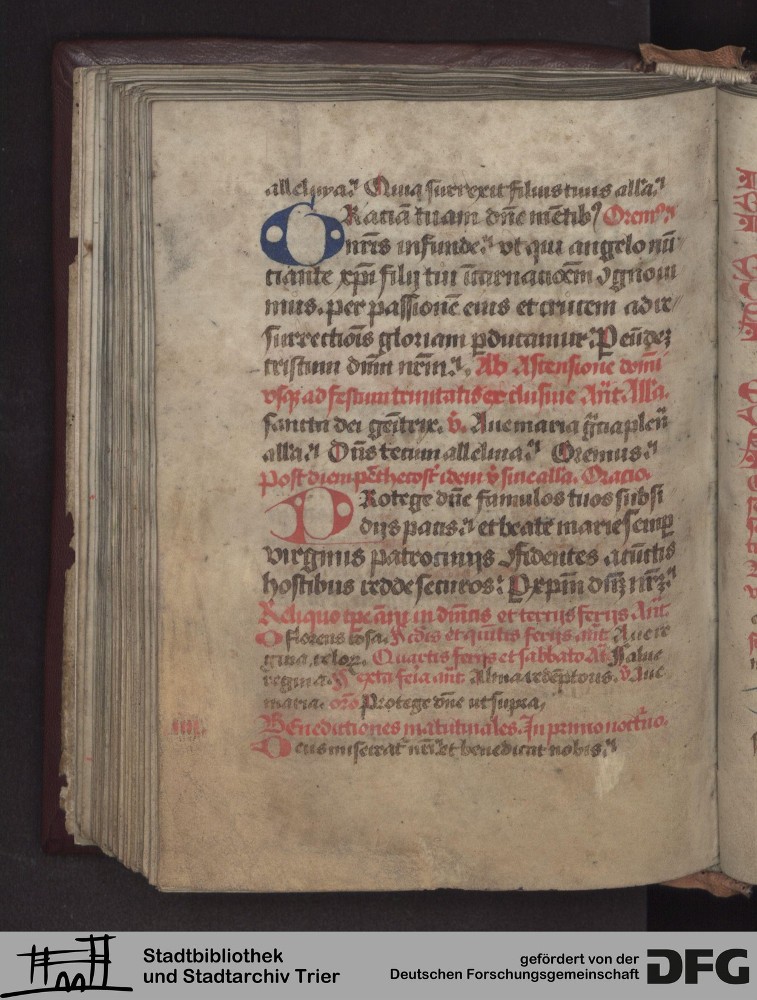 alleluya. Quia surrexit filius tuus alla.
GRaciā tuam dn̄e mētib⁹ Orem⁹
nr̄is infunde. vt qui angelo nū
ciante xp̄i filij tui īcarnacōem cognoui
mus. per passionē eius et crucem ad re/
surrectiōis gloriam ꝑducamur. P eūdeꝫ
cristum dn̄m nr̄m. Ab Ascensione domī
vsqꝫ ad festum trinitatis exclusiue Añt. Alla.
sancta dei genitrix. v̄. Aue maria gr̄a plen̄
alla. Dn̄s tecum alleluia. Oremus.
Post diem pēthecost̄ idem v̄ sine alla. Oracio.
PRotege dn̄e famulos tuos subsi
dijs pacis. et beate marie semꝑ
virginis patrocinijs ꝯfidentes a cūctis
hostibus redde securos. P xp̄m dn̄ꝫ nr̄ꝫ.
Reliquo tꝑe āni in dn̄icis et tercijs ferijs Añt.
O florens rosa. Scdis et quītis ferijs añt Aue re
gina celoꝝ. Quartis ferijs et sabbato Añ Salue
regina. Sexta feria añt Alma redēptoris. v̄. Aue
maria. orō Protege dn̄e ut supra,
BEnedictiones matutinales. In primo noct'no.
Deus misereat' nr̄i et benedicat nobis.
Stadtbibliothek
und Stadtarchiv Trier
gefördert von der
Deutschen Forschungsgemeinschaft
DFG